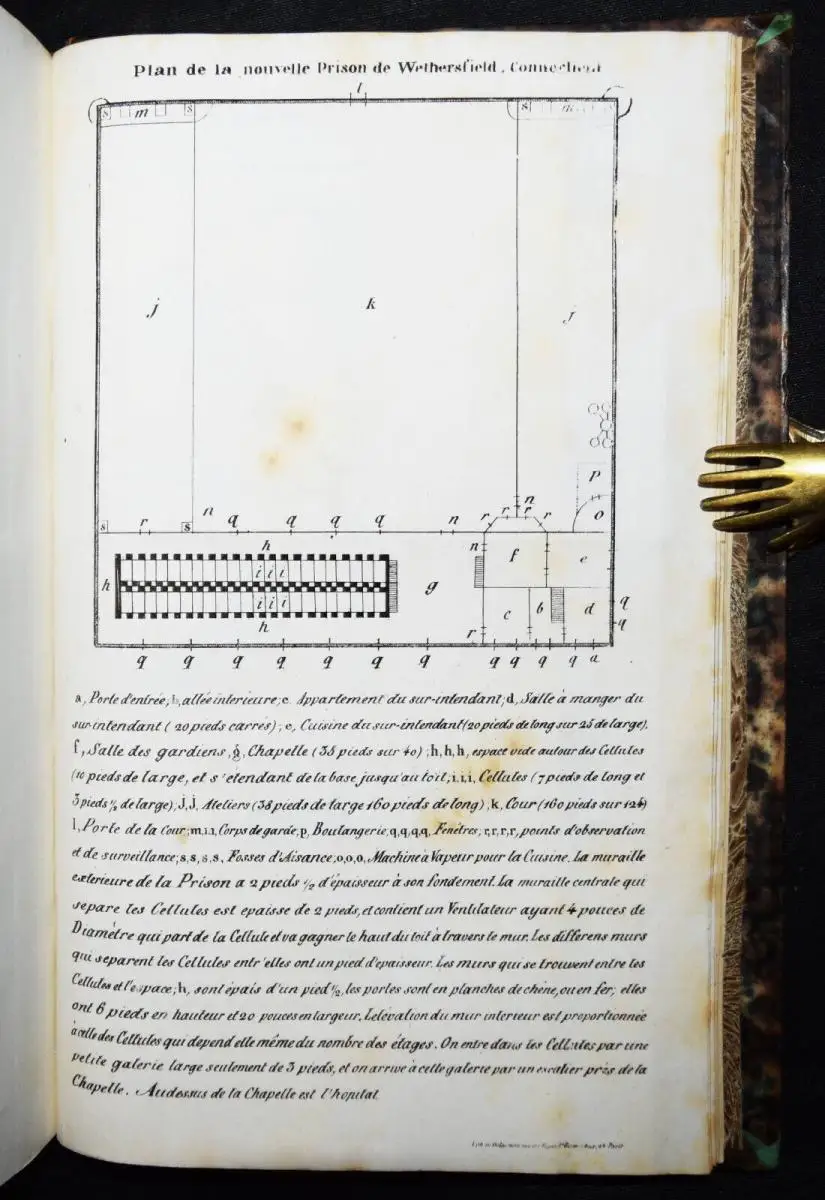 Plan de la nouvelle Prison de Wethersfield, Connecticut
l
s m s s m
j k J
P
n
n o
s r s q q q q n r r r r
h n f e
h i i i g
i i i c b d q
h r q
q q q q q q q q q q q a
a, Porte d'entrée; b, allée interieure; c. Appartement du sur-intendant; d, Salle à manger du
sur-intendant (20 pieds carrés); e, Cuisine du sur-intendant (20 pieds de long sur 25 de large).
f, Salle des gardiens, g, Chapelle (35 pieds sur 40); h, h, h, espace vide autour des Cellules
(10 pieds de large, et s'etendant de la base jusqu'au toit; i, i, i, Cellules (7 pieds de long et
3 pieds ½ de large), J, J, Ateliers (38 pieds de large 160 pieds de long); k, Cour (160 pieds sur 124)
l, Porte de la Cour; m, Corps de garde, p, Boulangerie, q, q, q, q, Fenêtres, r, r, r, r, points d'observation
et de surveillance; s, s, s, s, Fosses d'Aisance; o, o, o, Machine à Vapeur pour la Cuisine. La muraille
exterieure de la Prison a 2 pieds ½ d'épaisseur à son fondement. La muraille centrale qui
separe les Cellules est epaisse de 2 pieds, et contient un Ventilateur ayant 4 pouces de
Diamétre qui part de la Cellule et va gagner le haut du toit à travers le mur. Les differens murs
qui separent les Cellules entr'elles ont un pied d'epaisseur. Les murs qui se trouvent entre les
Cellules et l'espace; h, sont épais d'un pied ½, les portes sont en planches de chéne, ou en fer; elles
ont 6 pieds en hauteur et 20 pouces en largeur. L'elévation du mur interieur est proportionnée
à celle des Cellules qui depend elle même du nombre des étages. On entre dans les Cellules par une
petite galerie large seulement de 3 pieds, et on arrive à cette galerie par un escalier près de la
Chapelle. Audessus de la Chapelle est l'hopital